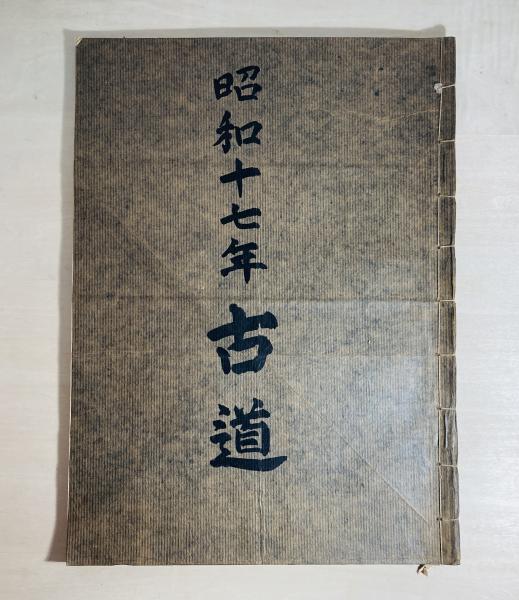 昭和十七年 古道